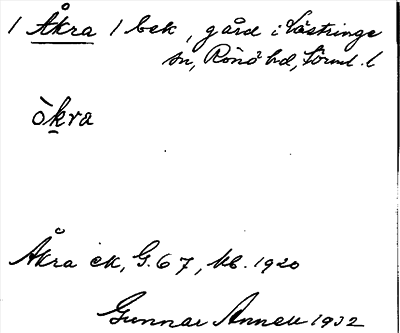 1 Åkra 1 bek, gård i Västringe
sn, Rönö hd, Sörml. l
òkra
Åkra ek, G. 67, kb. 1920
Gunnar Annell 1932